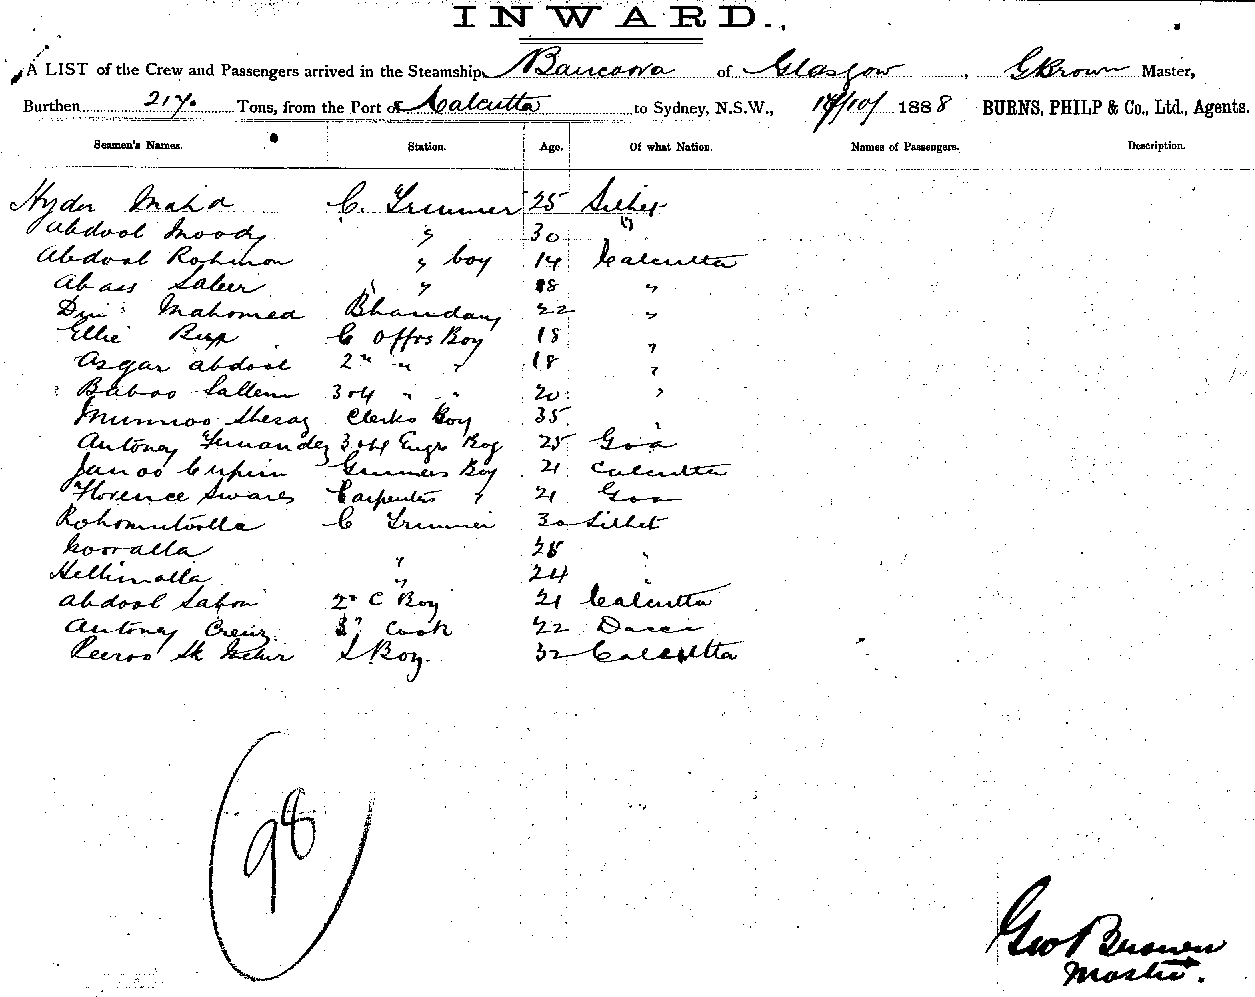 INWARD.
A LIST of the Crew and Passengers arrived in the Steamship Bancoora of Glasgow, G Brown Master,
Burthen 2170 Tons, from the Port of Calcutta to Sydney, N.S.W., /10/ 1888 BURNS, PHILP & Co., Ltd., Agents.
Seamen's Names. Station. Age. Of what Nation. Names of Passengers. Description.
Hyder C. Trimmer 25 Silhet
Abdool Moody " 30 "
Abdool Rohmon " boy 14 Calcutta
Abass " 18 "
Din Mahomed Bhandary 22 "
Ellie C Offrs Boy 18 "
Asgar abdool 2nd " " 18 "
Baboo Sallem 3rd " " 20 "
Clerks Boy 35 "
Antoney Fernandez 3rd Engrs Boy 25 Goa
Gunners Boy 21 Calcutta
Florence Swares Carpenters " 21 Goa
C Trimmer 30 Silhet
" "
" 24 "
Abdool 2nd C Boy 21 Calcutta
Antoney Cook 22
Boy 32 Calcutta
98
Geo Brown
Master.